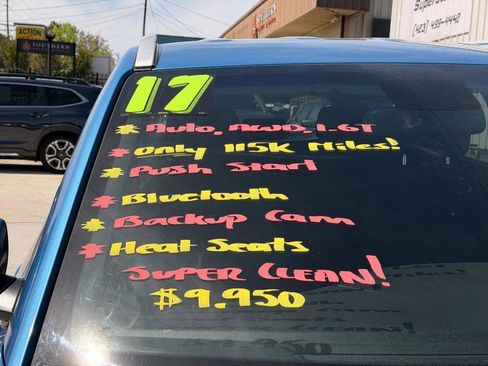 ACTION
SOUTHERN
(423) 499-4442
17
* Auto, AWD, 1.6T
* Only 115K Miles!
* Push Start
* Bluetooth
* Backup Cam
* Heat Seats
SUPER CLEAN!
$9,950